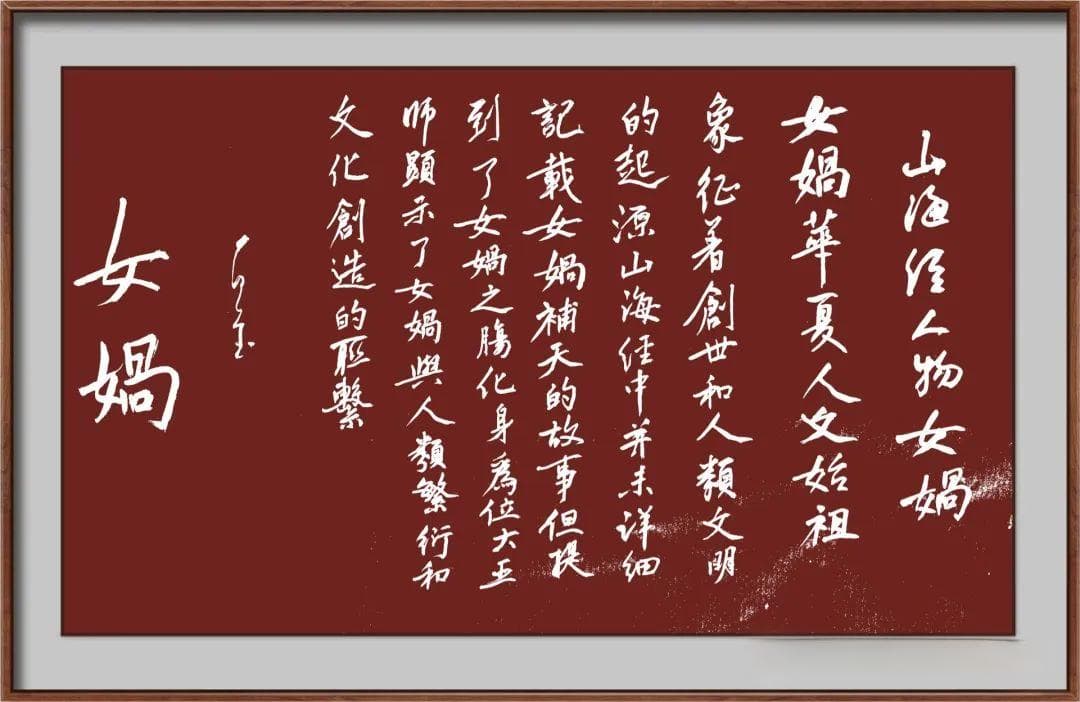 山海经人物女媧
女媧華夏人文始祖
象征着創世和人類文明
的起源山海经中并未详细
記載女媧補天的故事但提
到了女媧之腸化身為位大巫
师顯示了女媧與人類繁衍和
文化創造的聯繫
女媧